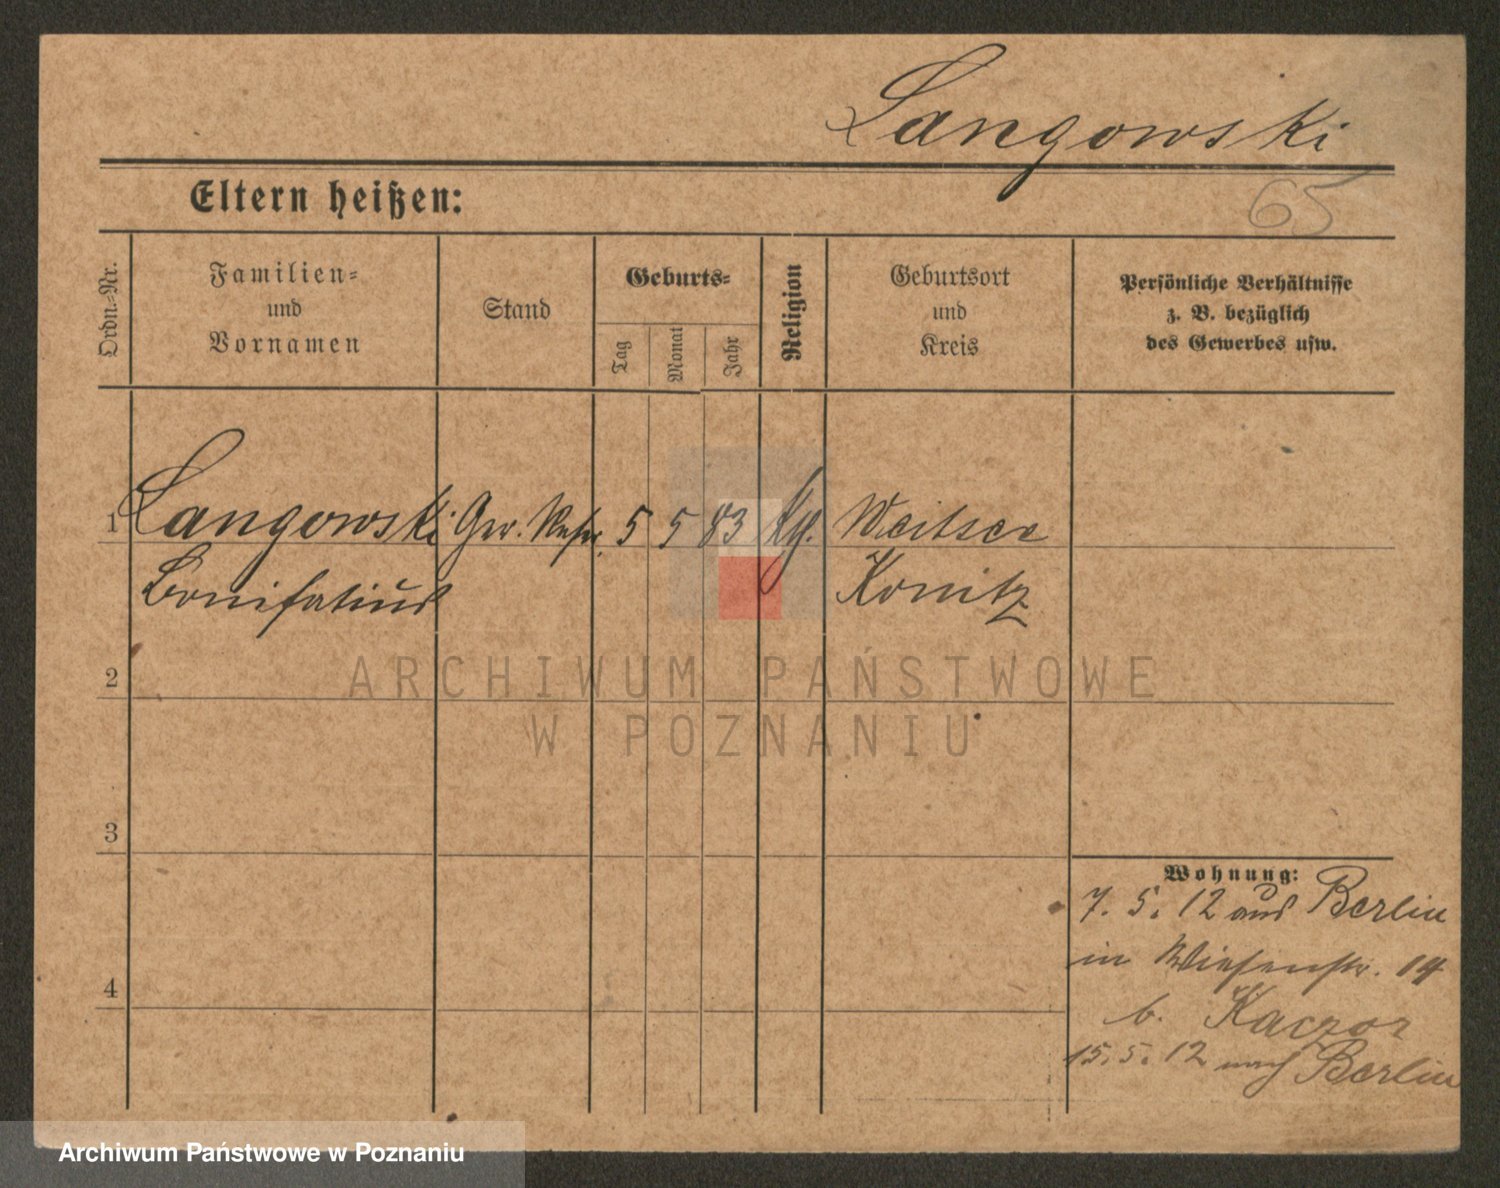 Langowski
65
Eltern heißen:
Ordn.-Nr.
Familien-
und
Vornamen
Stand
Geburts-
Tag
Monat
Jahr
Religion
Geburtsort
und
Kreis
Persönliche Verhältnisse
z. B. bezüglich
des Gewerbes usw.
1 Langowski Ger. Refer. 5 5 83 kth.
Bonifatius Konitz
2
3
4
Wohnung:
7. 5. 12 aus Berlin
in Wiesenstr. 14
b. Kaczor
15. 5. 12 nach Berlin
ARCHIWUM PAŃSTWOWE
W POZNANIU
Archiwum Państwowe w Poznaniu